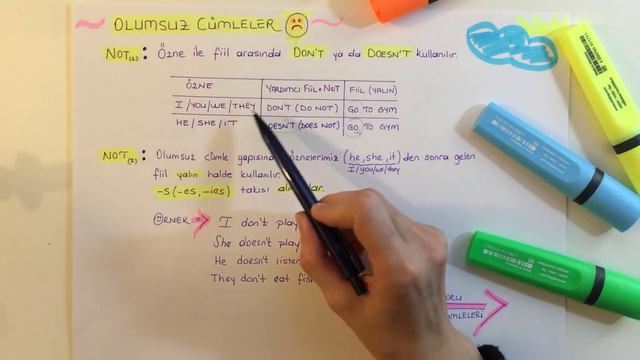 OLUMSUZ CÜMLELER
NOT(1): Özne ile fiil arasında DON'T ya da DOESN'T kullanılır.
ÖZNE YARDIMCI FİİL+NOT FİİL (YALIN)
I/YOU/WE/THEY DON'T (DO NOT) GO TO GYM
HE/SHE/IT DOESN'T (DOES NOT) GO TO GYM
NOT(2): Olumsuz cümle yapısında öznelerimiz (he, she, it) den sonra gelen
I/you/we/they
fiil yalın halde kullanılır.
-s (-es, -ies) takısı
ÖRNEK I don't play
She doesn't play
He doesn't listen
They don't eat fish